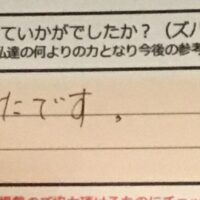 ていかがでしたか？（ズバ
私達の何よりの力となり今後の参考
たです。